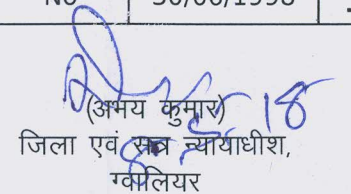 No 30/06/1998
(अभय कुमार)
जिला एवं सत्र न्यायाधीश,
ग्वालियर